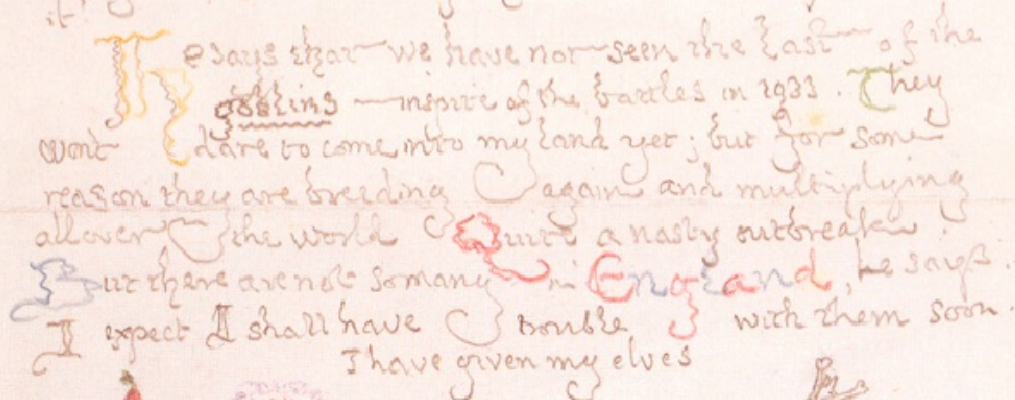 it.
He says that we have not seen the last of the
goblins — inspite of the battles in 1933. They
wont dare to come into my land yet; but for some
reason they are breeding again and multiplying
all over the world. Quite a nasty outbreak.
But there are not so many in England, he says.
I expect I shall have trouble with them soon.
I have given my elves